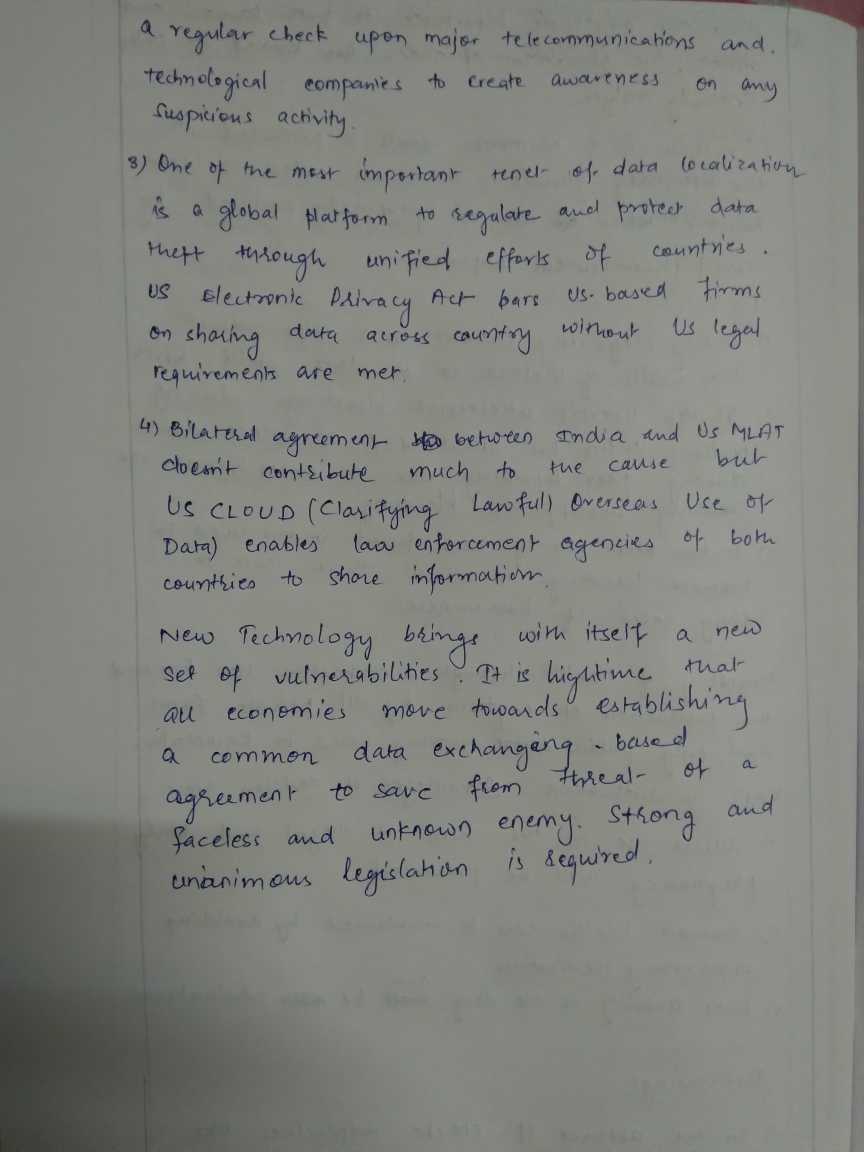 a regular check upon major telecommunications and.
technological companies to create awareness on any
suspicious activity.
3) One of the most important tenet of data localization
is a global platform to regulate and protect data
theft through unified efforts of countries.
US Electronic Privacy Act bars US-based firms
on sharing data across country without US legal
requirements are met.
4) Bilateral agreement between India and US MLAT
doesn't contribute much to the cause but
US CLOUD (Clarifying Lawful) Overseas Use of
Data) enables law enforcement agencies of both
countries to share information.
New Technology brings with itself a new
set of vulnerabilities. It is hightime that
all economies move towards establishing
a common data exchanging-based
agreement to save from threat of a
faceless and unknown enemy. Strong and
unanimous legislation is required.